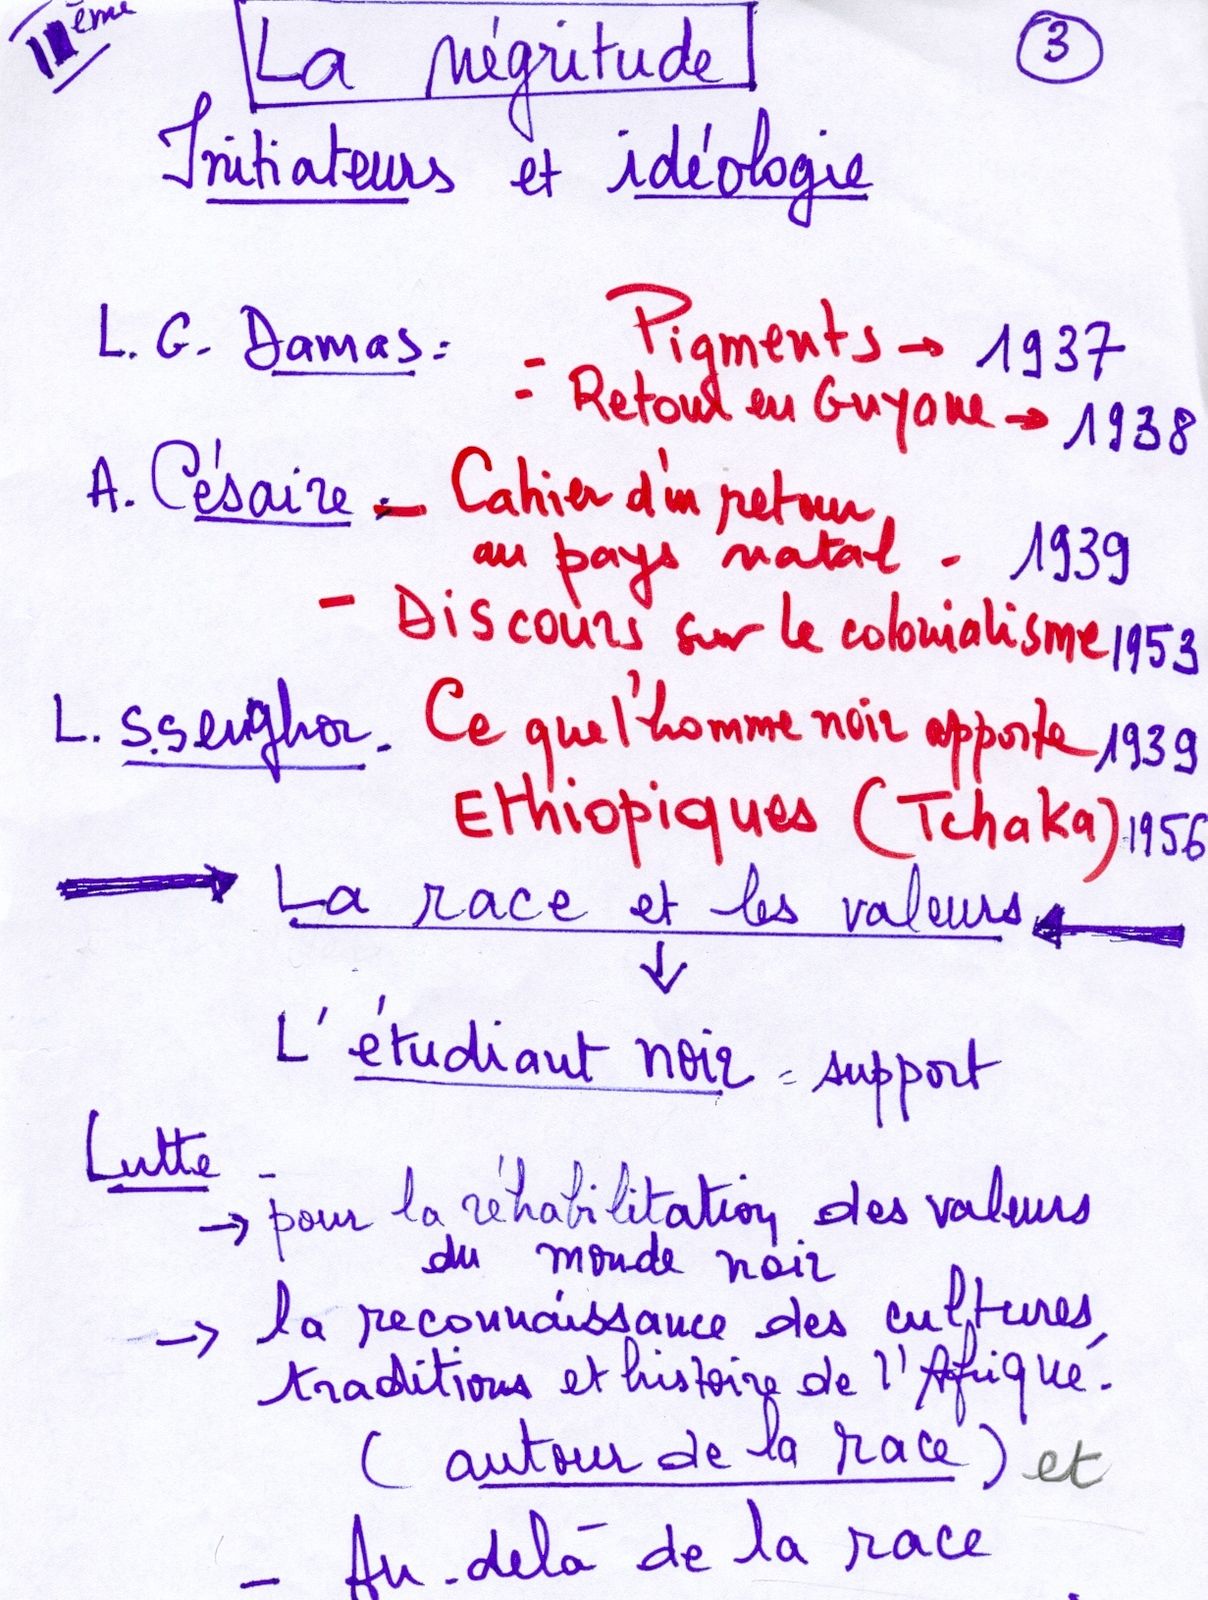 IIème
La négritude
3
Initiateurs et idéologie
L. G. Damas: - Pigments → 1937
- Retour en Guyane → 1938
A. Césaire: - Cahier d'un retour
au pays natal - 1939
- Discours sur le colonialisme 1953
L. S. Senghor. Ce que l'homme noir apporte 1939
Ethiopiques (Tchaka) 1956
→ La race et les valeurs ←
↓
L'étudiant noir = support
Lutte -
→ pour la réhabilitation des valeurs
du monde noir
→ la reconnaissance des cultures,
traditions et histoire de l'Afrique.
(autour de la race) et
- Au-delà de la race